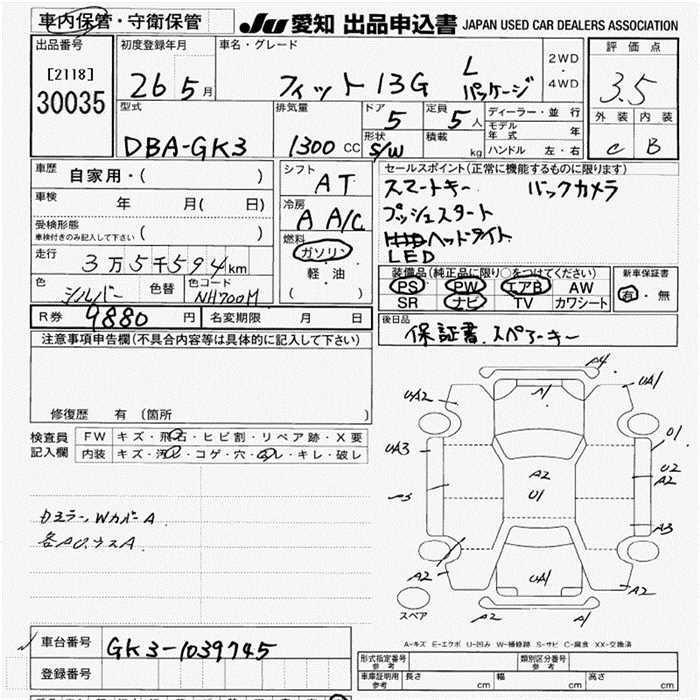 車内保管・守衛保管
JU 愛知 出品申込書 JAPAN USED CAR DEALERS ASSOCIATION
出品番号
[2118]
30035
初度登録年月
26 5月
車名・グレード
フィット 13G L パッケージ
2WD
・
4WD
評価点
3.5
外装 内装
C B
型式
DBA-GK3
排気量
1300 CC
ドア
5
形状
S/W
定員
5人
積載
kg
ディーラー・並行
モデル年式 年
ハンドル 左・右
車歴 自家用・( )
車検 年 月( 日)
受検形態
車検付きのみ記入して下さい ( )
走行
3万5千594km
色
シルバー
色替
色コード
NH700M
シフト
AT
冷房
A A/C
燃料
ガソリン
軽・油
( )
セールスポイント(正常に機能するものに限ります)
スマートキー バックカメラ
プッシュスタート
ヘッドライト
LED
装備品(純正品に限り○をつけてください)
PS PW エアB AW
SR ナビ TV カワシート
新車保証書
有・無
R券 9880円
名変期限 月 日
後日品
保証書、スペアーキー
注意事項申告欄(不具合内容等は具体的に記入して下さい)
修復歴 有 (箇所 )
検査員
記入欄
FW キズ・飛石・ヒビ割・リペア跡・X要
内装 キズ・汚れ・コゲ・穴・スレ・キレ・破レ
A4
UA2
A1
UA1
UA3
U1
U2
A2
A2
U1
A3
A3
A2
UA1
A2
A2
A1
スペア
A-キズ E-エクボ U-凹み W-補修跡 S-サビ C-腐食 XX-交換済
車台番号
GK3-1039745
登録番号
形式指定番号
参考
類別区分番号
参考
車庫証明用
参考
長さ cm 幅 cm 高さ cm